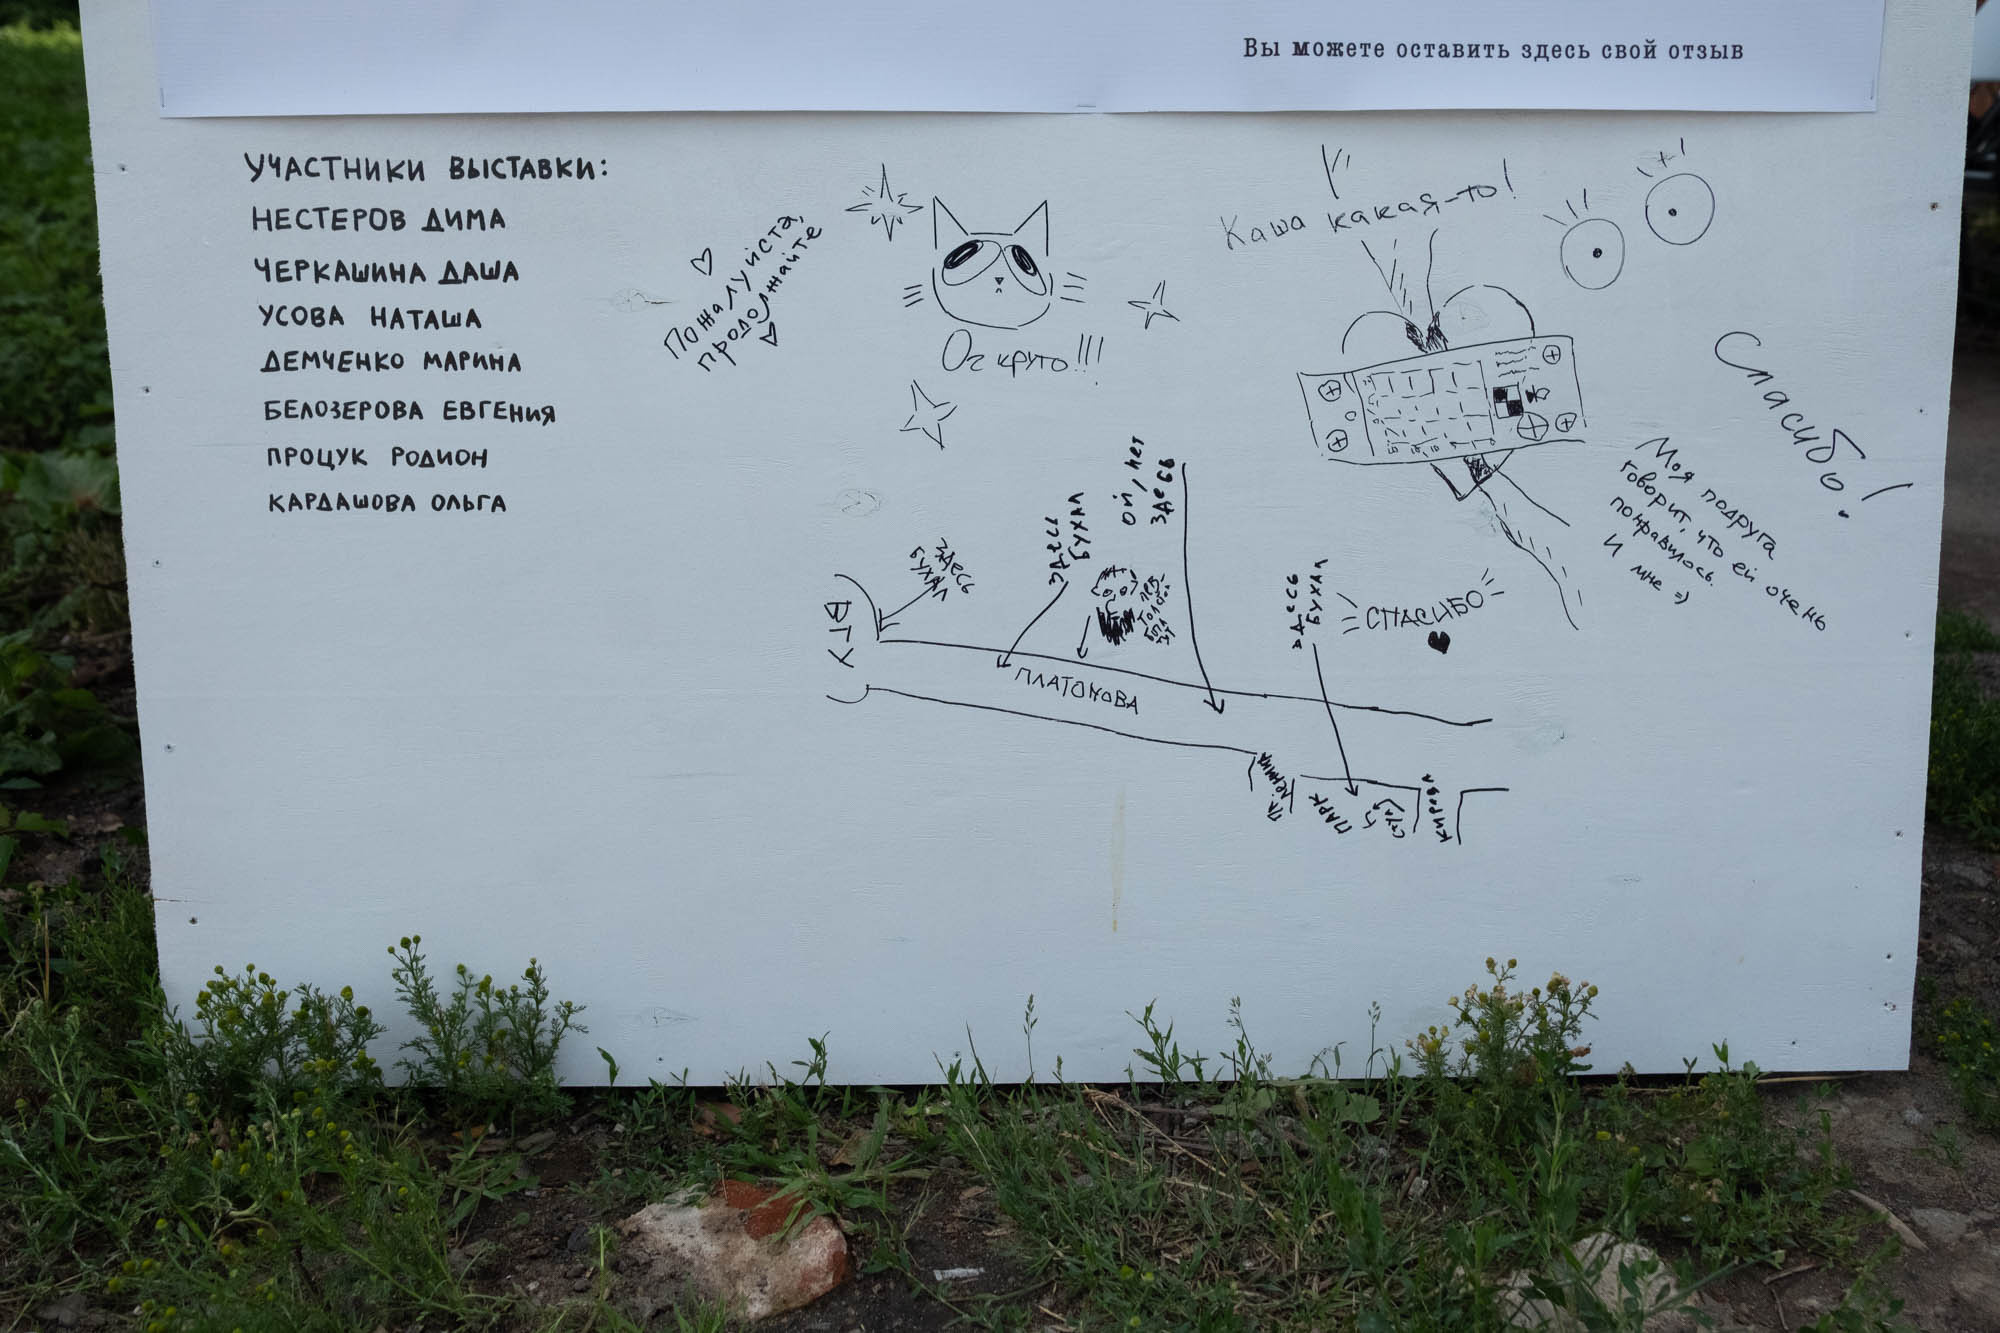 Вы можете оставить здесь свой отзыв
УЧАСТНИКИ ВЫСТАВКИ:
НЕСТЕРОВ ДИМА
ЧЕРКАШИНА ДАША
УСОВА НАТАША
ДЕМЧЕНКО МАРИНА
БЕЛОЗЕРОВА ЕВГЕНИЯ
ПРОЦУК РОДИОН
КАРДАШОВА ОЛЬГА
Пожалуйста,
продолжайте
Ог круто!!!
Каша какая-то!
Спасибо!
Моя подруга
говорит, что ей очень
понравилось.
И мне =)
ЗДЕСЬ
БУХАЛ
ЗДЕСЬ
БУХАЛ
ОЙ, НЕТ
ЗДЕСЬ
ЗДЕСЬ
БУХАЛ
СПАСИБО
ПЛАТОНОВА
ПЛ. ЛЕНИНА
ПАРК
КИРОВА